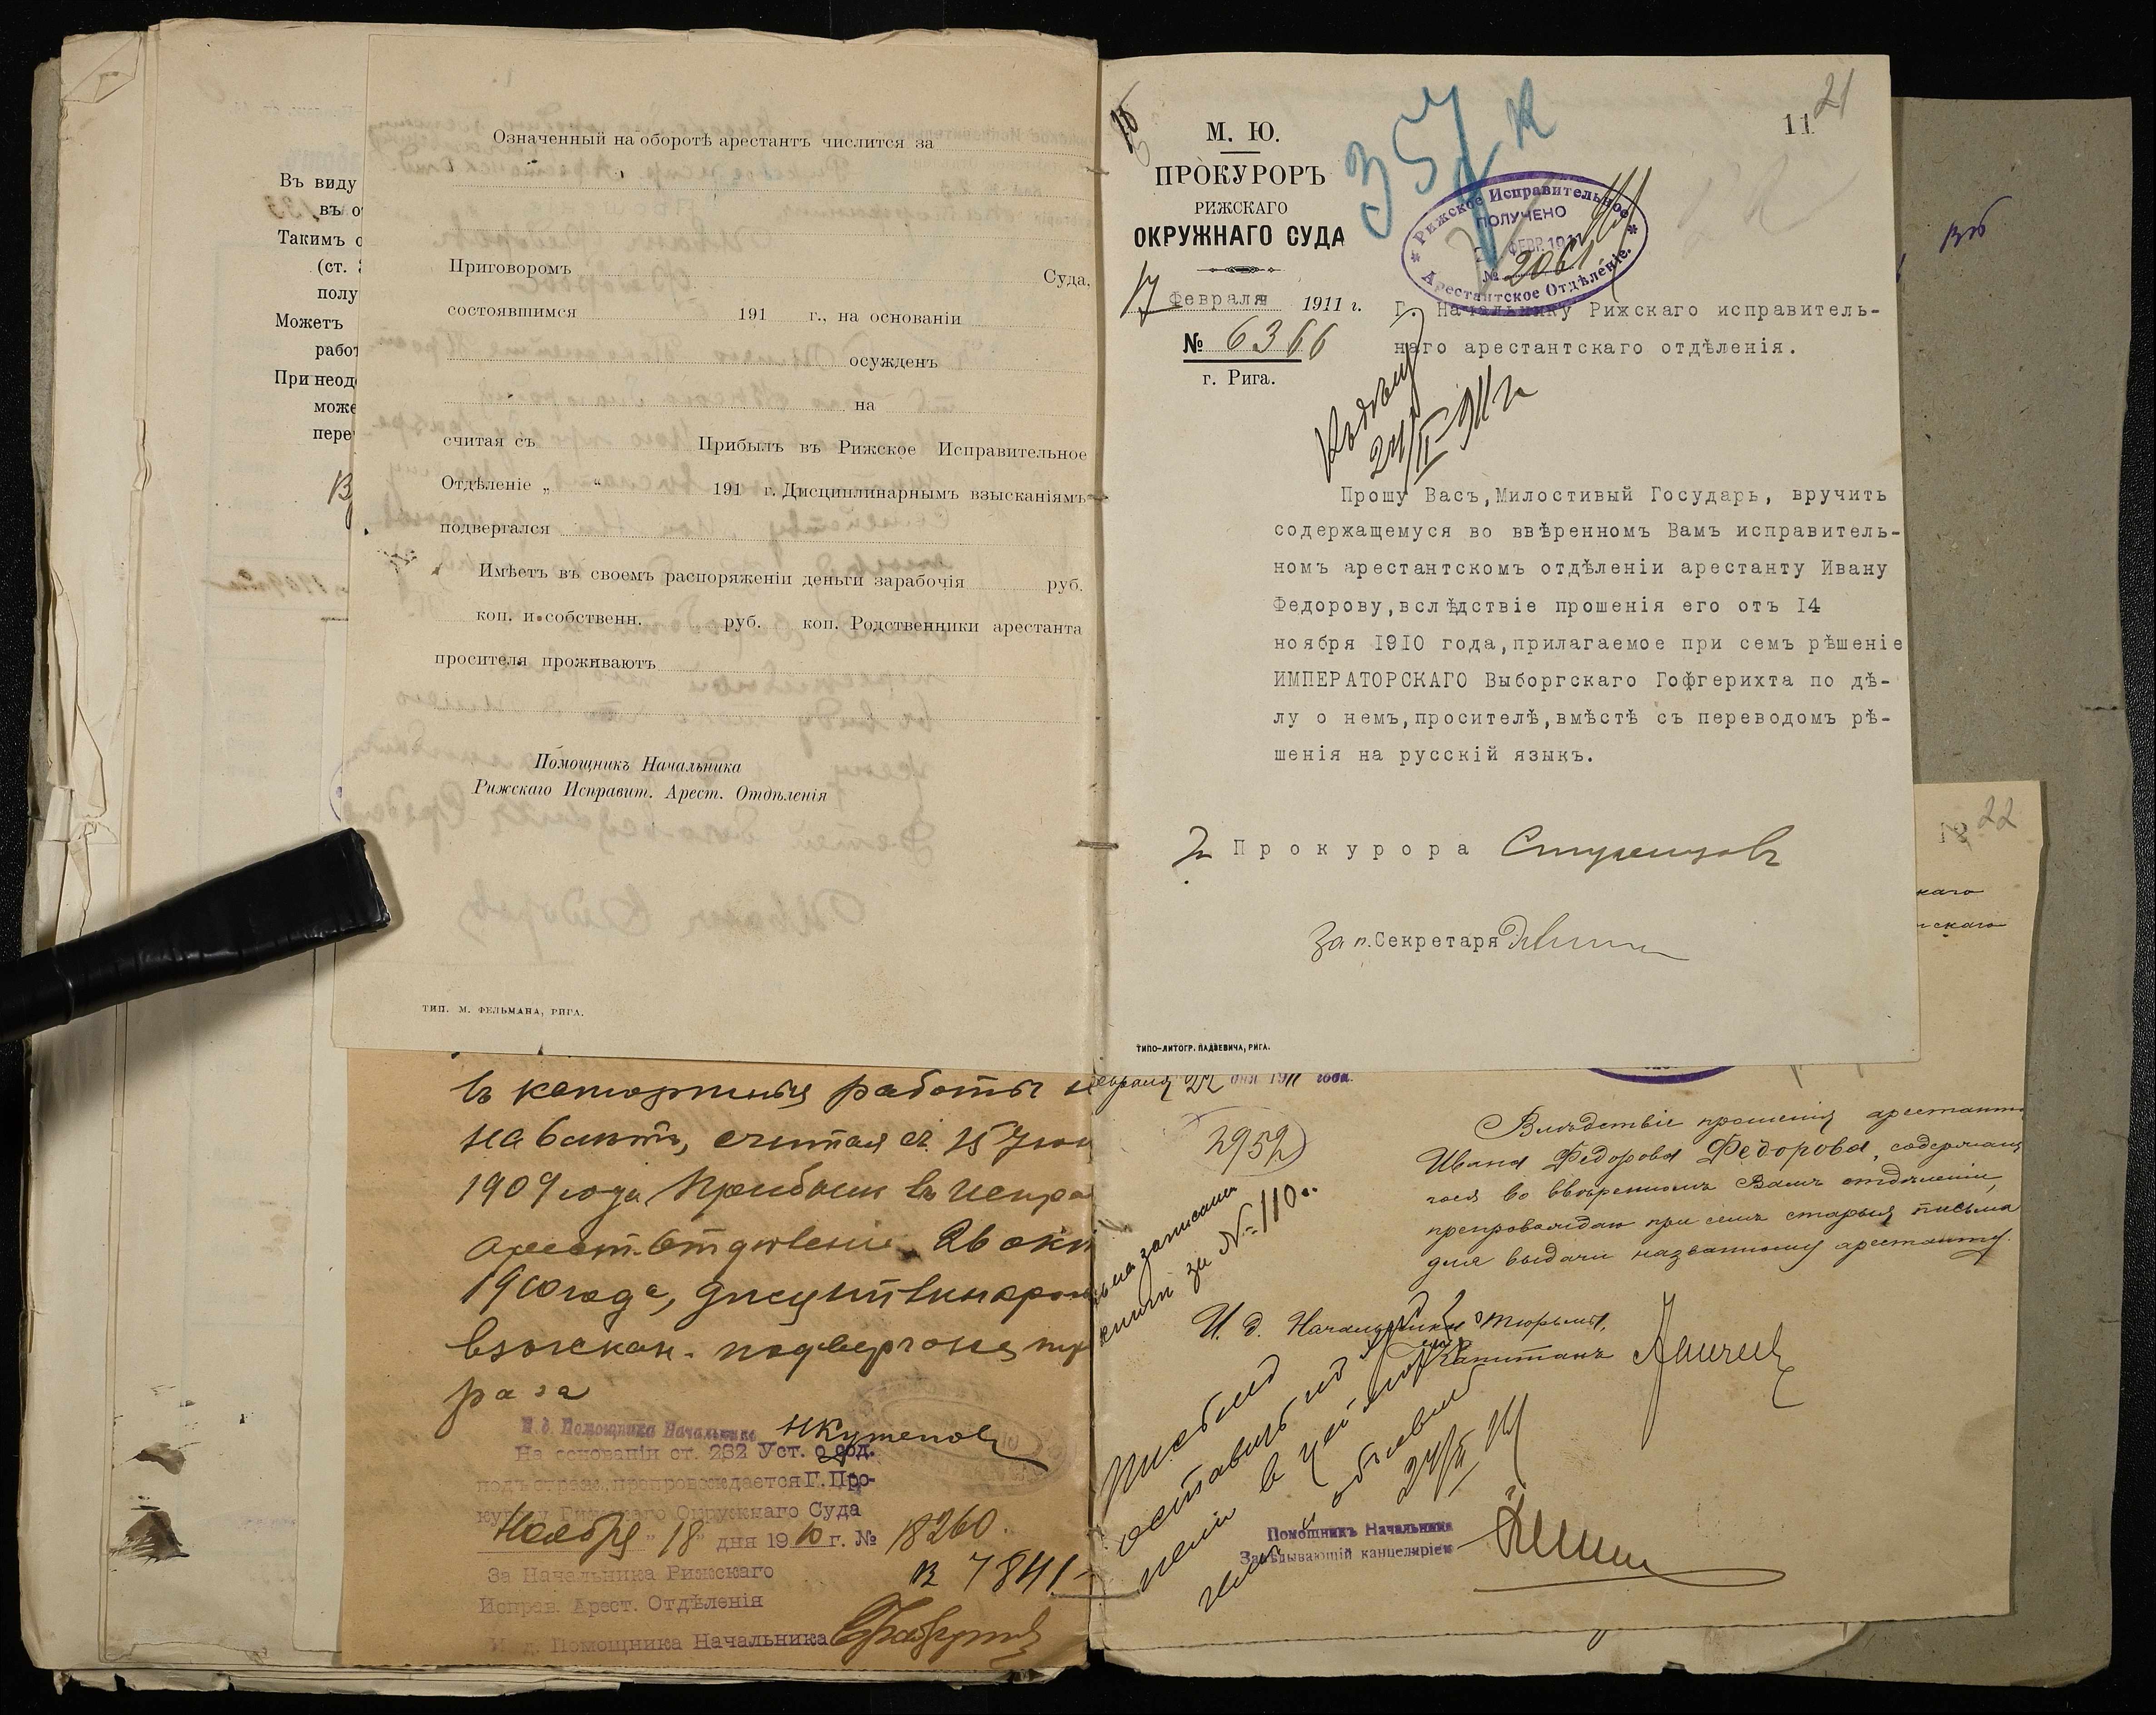 Въ виду
въ о
Такимъ о
(ст.
полу
Можетъ
работ
При неод
може
пере
Означенный на оборотѣ арестантъ числится за
Приговоромъ Суда,
состоявшимся 191 г., на основаніи
осужденъ
на
считая съ Прибылъ въ Рижское Исправительное
Отдѣленіе „ “ 191 г. Дисциплинарнымъ взысканіямъ
подвергался
Имѣетъ въ своемъ распоряженіи деньги зарабочія руб.
коп. и собственн. руб. коп. Родственники арестанта
просителя проживаютъ
Помощникъ Начальника
Рижскаго Исправит. Арест. Отдѣленія
ТИП. М. ФЕЛЬМАНА, РИГА.
въ каторжныя работы
1909 года Прибылъ въ испра
арест. отдѣленіе 26 окт
1910 года, дисциплинарн
взыскан. подвергался
раза
И. д. Помощника Начальника
На основаніи ст. 262 Уст. о сод.
подъ страж. препровождается Г. Про-
курору Рижскаго Окружнаго Суда
Ноября „ 18 “ дня 1910 г. № 18260.
7841
За Начальника Рижскаго
Исправ. Арест. Отдѣленія
И. д. Помощника Начальника
21
11
357
М. Ю.
ПРОКУРОРЪ
РИЖСКАГО
ОКРУЖНАГО СУДА
17 Февраля 1911 г.
№ 6366
г. Рига.
Рижское Исправительное
ПОЛУЧЕНО
ФЕВР. 1911
№ 2061
Арестантское Отдѣленіе.
Г. Начальнику Рижскаго исправитель-
наго арестантскаго отдѣленія.
24/II 911 г
Прошу Васъ, Милостивый Государь, вручить
содержащемуся во ввѣренномъ Вамъ исправитель-
номъ арестантскомъ отдѣленіи арестанту Ивану
Федорову, вслѣдствіе прошенія его отъ 14
ноября 1910 года, прилагаемое при семъ рѣшеніе
ИМПЕРАТОРСКАГО Выборгскаго Гофгерихта по дѣ-
лу о немъ, просителѣ, вмѣстѣ съ переводомъ рѣ-
шенія на русскій языкъ.
Прокурора
За п. Секретаря
ТИПО-ЛИТОГР. ПАДЗЕВИЧА, РИГА.
22
каго
скаго
евраля 22 дня 1911 года.
2952
Вслѣдствіе прошенія арестанта
Ивана Федорова Федорова, содержащ
гося во ввѣренномъ Вамъ отдѣленіи,
препровождаю при семъ старыя письма
для выдачи названному арестанту.
записаны
книги за № 110
И. д. Начальника тюрьмы,
Капитанъ
Письма
оставить
24/II 11
Помощникъ Начальника
Завѣдывающій канцеляріею